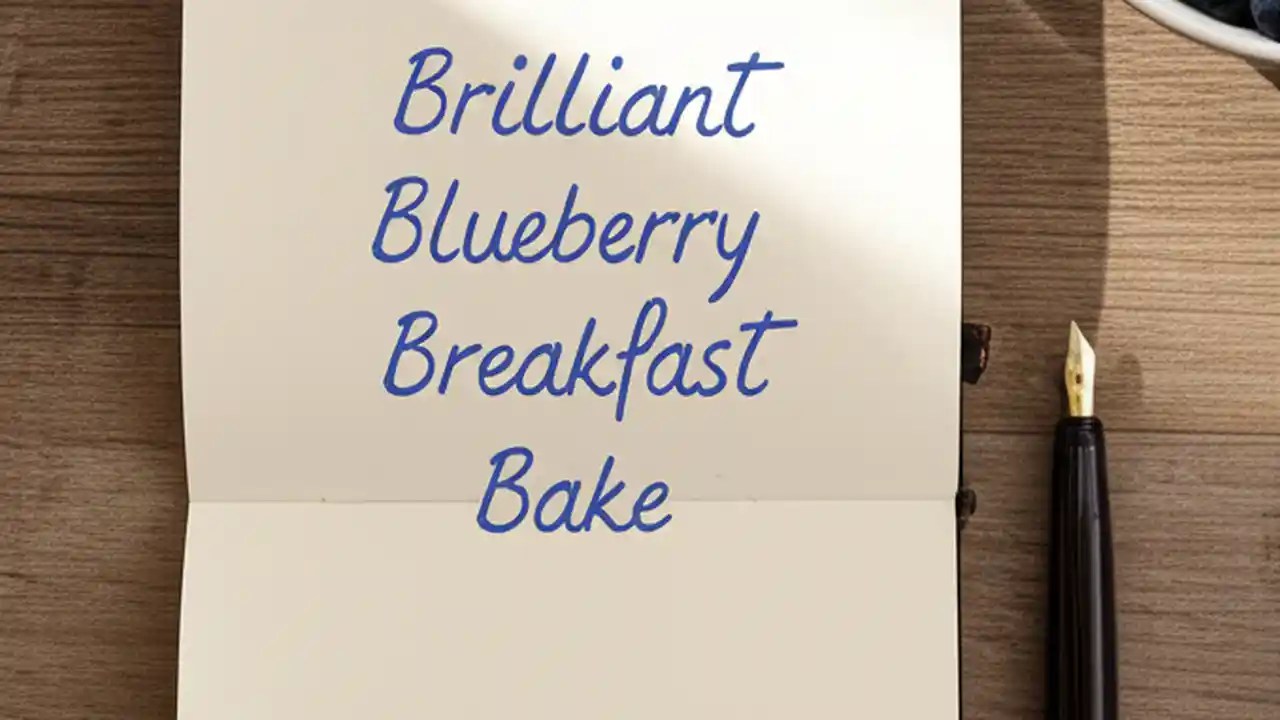 Brilliant
Blueberry
Breakfast
Bake